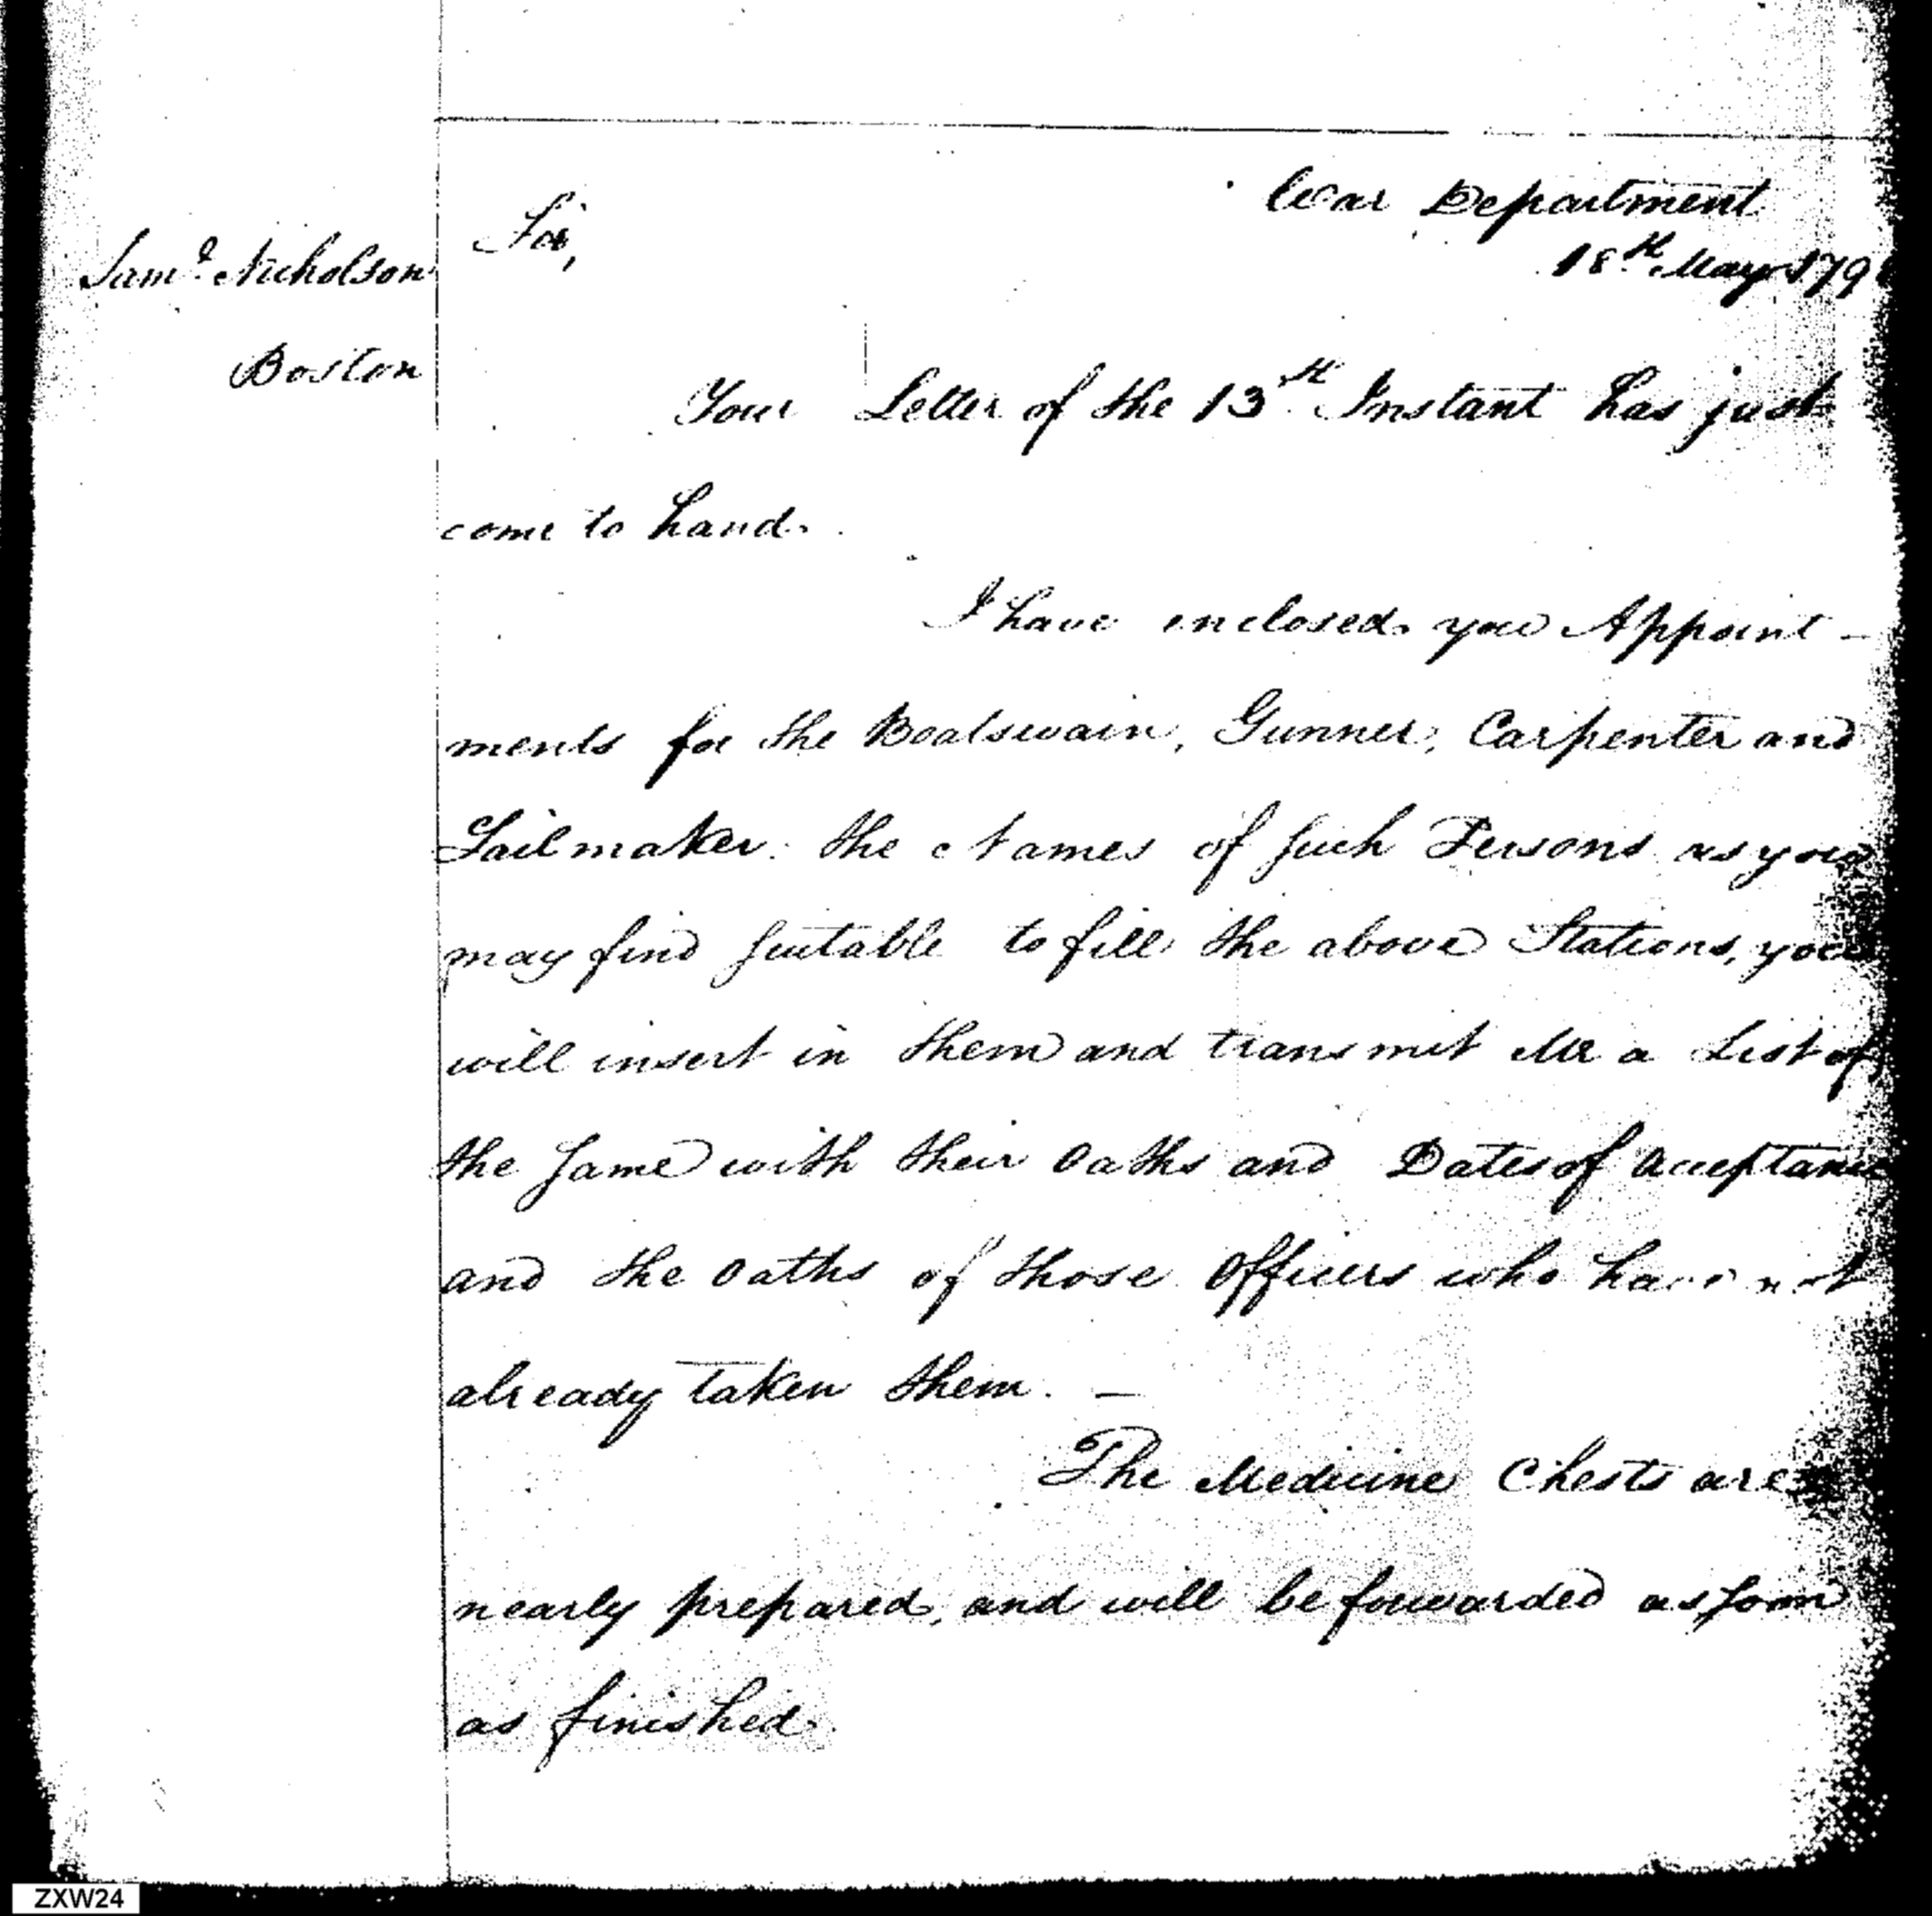 War Department
18th May 179
Saml Nicholson
Boston
Sir,
Your Letter of the 13th Instant has just
come to hand.
I have enclosed you Appoint-
ments for the Boatswain, Gunner, Carpenter and
Sailmaker. the Names of such Persons as you
may find suitable to fill the above Stations, you
will insert in them and transmit Me a List of
the same with their Oaths and Dates of Acceptance
and the Oaths of those Officers who have not
already taken them. —
The Medicine Chests are
nearly prepared, and will be forwarded as soon
as finished.
ZXW24